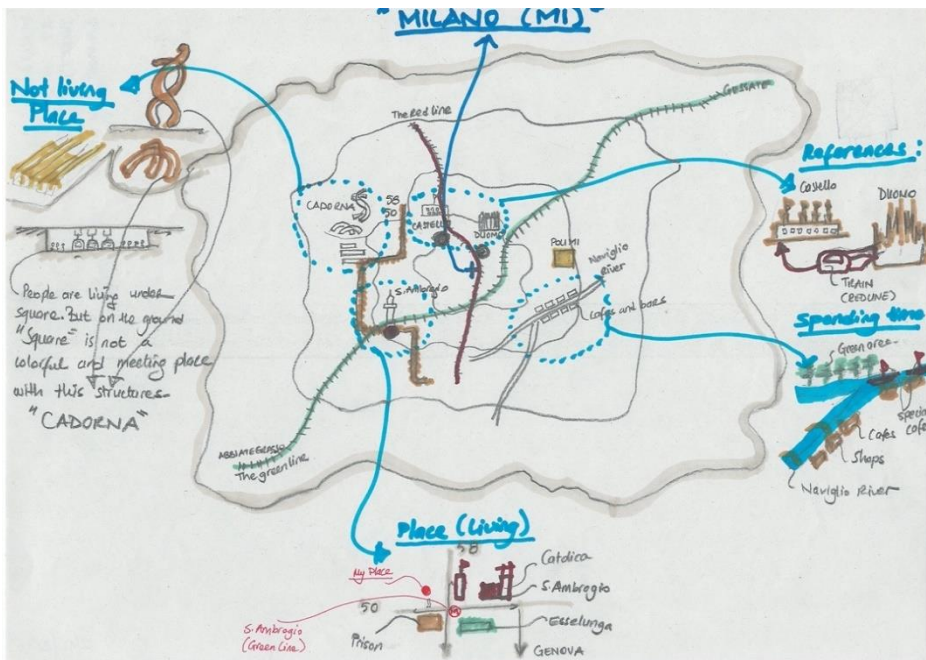 "MILANO (MI)"
Not living
Place
People are living under
square. But on the ground
"Square" is not a
colorful and meeting place
with this structures-
"CADORNA"
The red line
GESSATE
CADORNA
58
50
CASTELLO
DUOMO
POLIMI
Naviglio
River
S. Ambrogio
Cafes and bars
ABBIATEGRASSO
The green line
References:
Castello
DUOMO
TRAIN
(REDLINE)
Spending time
Green area
Cafes
Shops
Naviglio River
Place (Living)
58
My Place
50
S. Ambrogio
(Green Line)
Prison
M
Catolica
S. Ambrogio
Esselunga
GENOVA